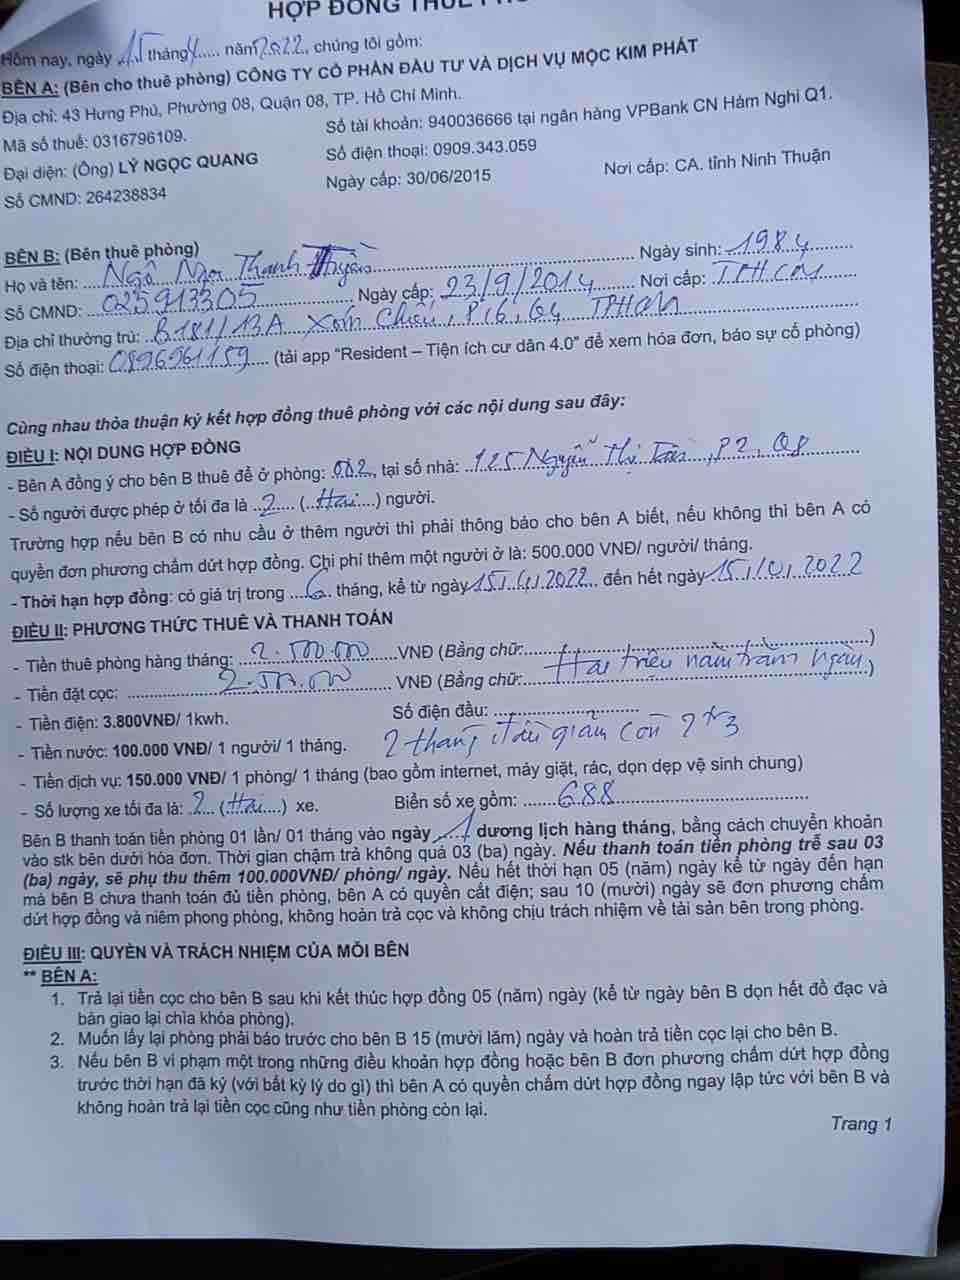 HỢP ĐỒNG THUÊ
Hôm nay, ngày 15 tháng 4 năm 2022, chúng tôi gồm:
BÊN A: (Bên cho thuê phòng) CÔNG TY CỔ PHẦN ĐẦU TƯ VÀ DỊCH VỤ MỘC KIM PHÁT
Địa chỉ: 43 Hưng Phú, Phường 08, Quận 08, TP. Hồ Chí Minh.
Mã số thuế: 0316796109. Số tài khoản: 940036666 tại ngân hàng VPBank CN Hàm Nghi Q1.
Đại diện: (Ông) LÝ NGỌC QUANG Số điện thoại: 0909.343.059
Số CMND: 264238834 Ngày cấp: 30/06/2015 Nơi cấp: CA. tỉnh Ninh Thuận
BÊN B: (Bên thuê phòng)
Họ và tên: Ngô Ngọc Thanh Ngày sinh: 1984
Số CMND: 025913305 Ngày cấp: 23/9/2014 Nơi cấp: TPHCM
Địa chỉ thường trú: B181/13A Xóm Chiếu, P16, Q4 TPHCM
Số điện thoại: 0896961189 (tải app “Resident – Tiện ích cư dân 4.0” để xem hóa đơn, báo sự cố phòng)
Cùng nhau thỏa thuận ký kết hợp đồng thuê phòng với các nội dung sau đây:
ĐIỀU I: NỘI DUNG HỢP ĐỒNG
- Bên A đồng ý cho bên B thuê để ở phòng: 002, tại số nhà: 125 Nguyễn Thị Tần, P2, Q8
- Số người được phép ở tối đa là 2 (Hai) người.
Trường hợp nếu bên B có nhu cầu ở thêm người thì phải thông báo cho bên A biết, nếu không thì bên A có
quyền đơn phương chấm dứt hợp đồng. Chi phí thêm một người ở là: 500.000 VNĐ/ người/ tháng.
- Thời hạn hợp đồng: có giá trị trong 6 tháng, kể từ ngày 15/4/2022 đến hết ngày 15/10/2022
ĐIỀU II: PHƯƠNG THỨC THUÊ VÀ THANH TOÁN
- Tiền thuê phòng hàng tháng: 2.500.000 VNĐ (Bằng chữ: )
- Tiền đặt cọc: 2.500.000 VNĐ (Bằng chữ: Hai triệu năm trăm ngàn)
- Tiền điện: 3.800VNĐ/ 1kwh. Số điện đầu:
- Tiền nước: 100.000 VNĐ/ 1 người/ 1 tháng. 2 tháng đầu giảm còn 2tr3
- Tiền dịch vụ: 150.000 VNĐ/ 1 phòng/ 1 tháng (bao gồm internet, máy giặt, rác, dọn dẹp vệ sinh chung)
- Số lượng xe tối đa là: 2 (Hai) xe. Biển số xe gồm: 688
Bên B thanh toán tiền phòng 01 lần/ 01 tháng vào ngày 1 dương lịch hàng tháng, bằng cách chuyển khoản
vào stk bên dưới hóa đơn. Thời gian chậm trả không quá 03 (ba) ngày. Nếu thanh toán tiền phòng trễ sau 03
(ba) ngày, sẽ phụ thu thêm 100.000VNĐ/ phòng/ ngày. Nếu hết thời hạn 05 (năm) ngày kể từ ngày đến hạn
mà bên B chưa thanh toán đủ tiền phòng, bên A có quyền cắt điện; sau 10 (mười) ngày sẽ đơn phương chấm
dứt hợp đồng và niêm phong phòng, không hoàn trả cọc và không chịu trách nhiệm về tài sản bên trong phòng.
ĐIỀU III: QUYỀN VÀ TRÁCH NHIỆM CỦA MỖI BÊN
** BÊN A:
1. Trả lại tiền cọc cho bên B sau khi kết thúc hợp đồng 05 (năm) ngày (kể từ ngày bên B dọn hết đồ đạc và
bàn giao lại chìa khóa phòng).
2. Muốn lấy lại phòng phải báo trước cho bên B 15 (mười lăm) ngày và hoàn trả tiền cọc lại cho bên B.
3. Nếu bên B vi phạm một trong những điều khoản hợp đồng hoặc bên B đơn phương chấm dứt hợp đồng
trước thời hạn đã ký (với bất kỳ lý do gì) thì bên A có quyền chấm dứt hợp đồng ngay lập tức với bên B và
không hoàn trả lại tiền cọc cũng như tiền phòng còn lại.
Trang 1